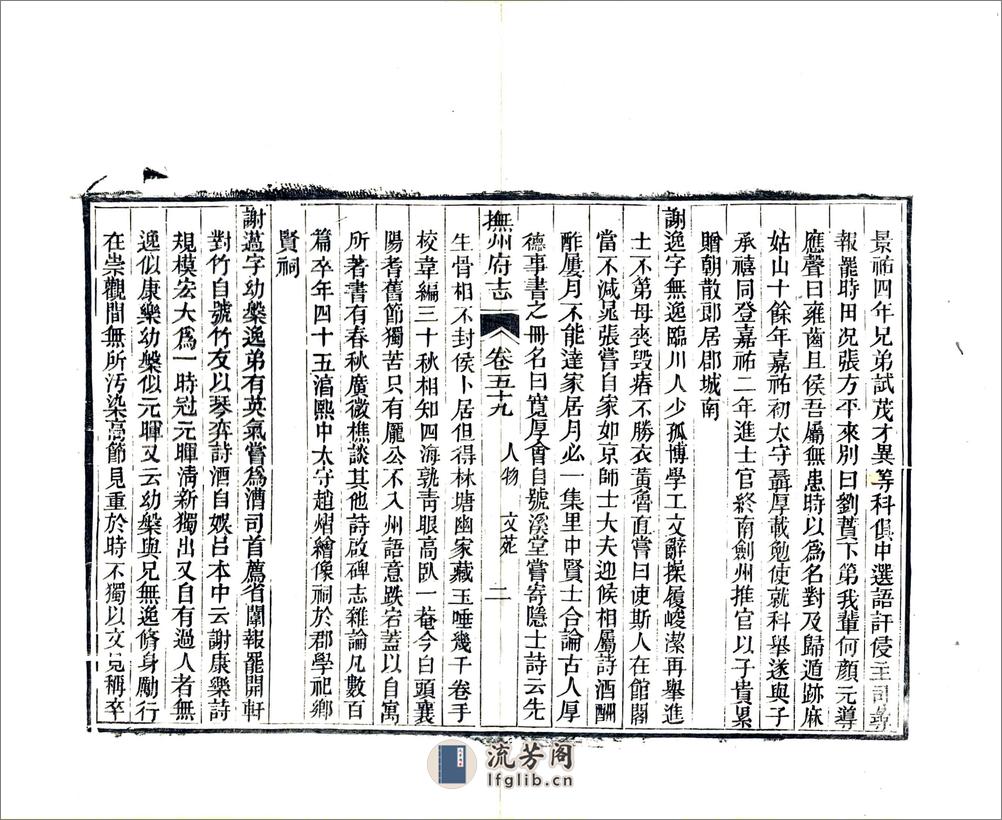 景祐四年兄弟試茂才異等科俱中選語訐侵主司尋
報罷時田況張方平來別曰劉蕡下第我輩何顏元導
應聲曰雍齒且侯吾屬無患時以為名對及歸遁跡麻
姑山十餘年嘉祐初太守聶厚載勉使就科舉遂與子
承禧同登嘉祐二年進士官終南劍州推官以子貴累
贈朝散郎居郡城南
謝逸字無逸臨川人少孤博學工文辭操履峻潔再舉進
士不第母喪毀瘠不勝衣黃魯直嘗曰使斯人在館閣
當不減晁張嘗自家如京師士大夫迎候相屬詩酒酬
酢屢月不能達家居月必一集里中賢士合論古人厚
德事書之冊名曰寬厚會自號溪堂嘗寄隱士詩云先
撫州府志 卷五十九 人物 文苑 二
生骨相不封侯卜居但得林塘幽家藏玉唾幾千卷手
校韋編三十秋相知四海孰青眼高臥一菴今白頭襄
陽耆舊節獨苦只有龐公不入州語意跌宕蓋以自寓
所著書有春秋廣微樵談其他詩啟碑志雜論凡數百
篇卒年四十五湻熙中太守趙熠繪像祠於郡學祀鄉
賢祠
謝薖字幼槃逸弟有英氣嘗爲漕司首薦省闈報罷開軒
對竹自號竹友以琴弈詩酒自娛呂本中云謝康樂詩
規模宏大爲一時冠元暉淸新獨出又自有過人者無
逸似康樂幼槃似元暉又云幼槃與兄無逸脩身勵行
在崇觀間無所汚染高節見重於時不獨以文見稱卒
流芳阁
lfglib.cn